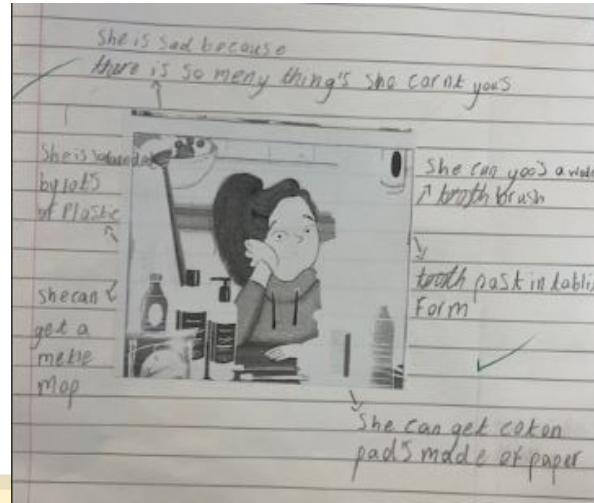 She is sad because
there is so meny thing's she carnt yous
She is
by lots
of Plastic
She can yoos a
tooth brush
tooth past in
Form
she can
get a
mop
She can get coton
pad's made of paper